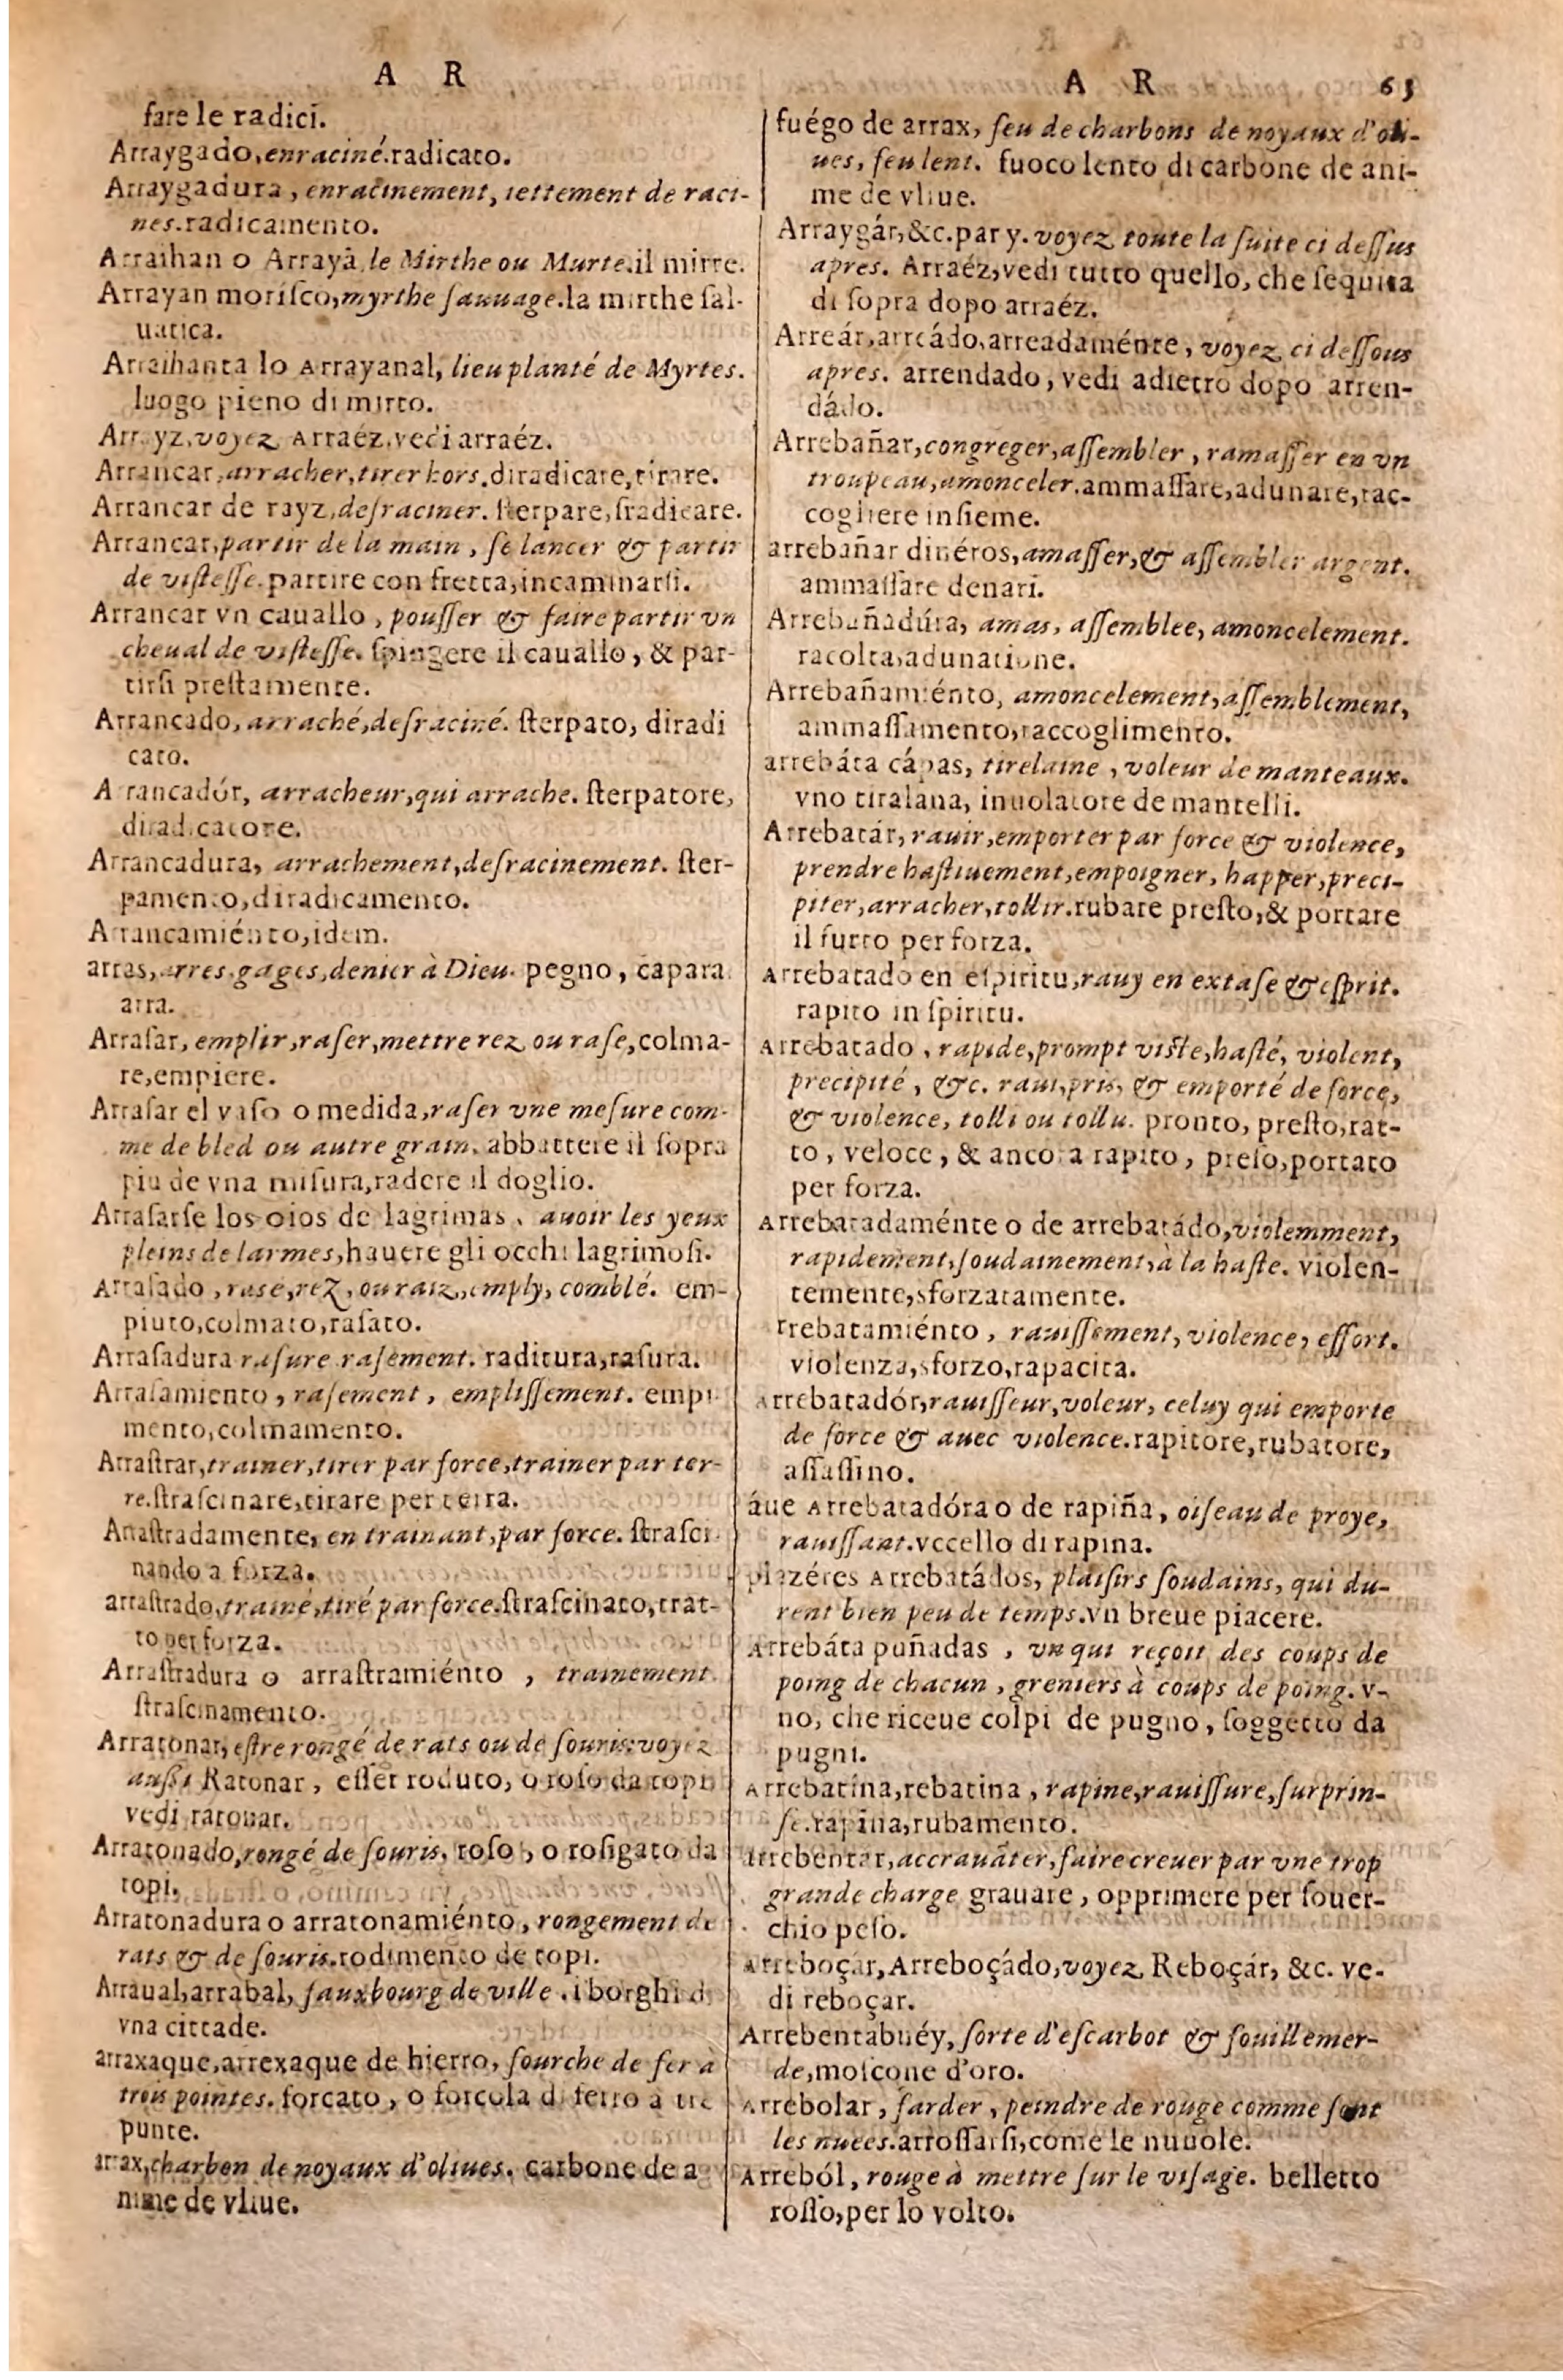 A R
fare le radici.
Arraygado, enraciné. radicato.
Arraygadura, enracinement, iettement de raci-
nes. radicamento.
Arraihan o Arrayā, le Mirthe ou Murte. il mirre.
Arrayan moriſco, myrthe ſauuage. la mirthe ſal-
uatica.
Arraihanta lo Arrayanal, lieu planté de Myrtes.
luogo pieno di mirto.
Arrayz, voyez Arraéz. vedi arraéz.
Arrancar, arracher, tirer hors. diradicare, tirare.
Arrancar de rayz, deſraciner. ſterpare, ſradicare.
Arrancar, partir de la main, ſe lancer & partir
de viſteſſe. partire con fretta, incaminarſi.
Arrancar vn cauallo, pouſſer & faire partir vn
cheual de viſteſſe. ſpingere il cauallo, & par-
tirſi preſtamente.
Arrancado, arraché, deſraciné. ſterpato, diradi
cato.
Arrancadór, arracheur, qui arrache. ſterpatore,
diradicatore.
Arrancadura, arrachement, deſracinement. ſter-
pamento, diradicamento.
Arrancamiénto, idem.
arras, arres, gages, denier à Dieu. pegno, capara
arra.
Arraſar, emplir, raſer, mettre rez ou raſe, colma-
re, empiere.
Arraſar el vaſo o medida, raſer vne meſure com-
me de bled ou autre grain. abbattere il ſopra
piu de vna miſura, radere il doglio.
Arraſarſe los oios de lagrimas, auoir les yeux
pleins de larmes, hauere gli occhi lagrimoſi.
Arraſado, rasé, rez, ou raiz, emply, comblé. em-
piuto, colmato, raſato.
Arraſadura raſure raſement. raditura, raſura.
Arraſamiento, raſement, empliſſement. empi
mento, colmamento.
Arraſtrar, trainer, tirer par force, trainer par ter-
re. ſtraſcinare, tirare per terra.
Arraſtradamente, en trainant, par force. ſtraſci-
nando a forza.
arraſtrado, trainé, tiré par force. ſtraſcinato, trat-
to per forza.
Arraſtradura o arraſtramiénto, trainement.
ſtraſcinamento.
Arratonar, eſtre rongé de rats ou de ſouris: voyez
auſſi Ratonar, eſſer roduto, o roſo da topi
vedi ratonar.
Arratonado, rongé de ſouris. roſo, o roſigato da
topi.
Arratonadura o arratonamiénto, rongement de
rats & de ſouris. rodimento de topi.
Arraual, arrabal, fauxbourg de ville. i borghi di
vna cittade.
arraxaque, arrexaque de hierro, fourche de fer à
trois pointes. forcato, o forcola di ferro a tre
punte.
arrax, charbon de noyaux d'oliues. carbone de a
nime de vliue.
A R 63
fuégo de arrax, feu de charbons de noyaux d'oli-
ues, feu lent. fuoco lento di carbone de ani-
me de vliue.
Arraygár, &c. par y. voyez toute la ſuite ci deſſus
apres. Arraéz, vedi tutto quello, che ſequita
di ſopra dopo arraéz.
Arreár, arreádo, arreadaménte, voyez ci deſſous
apres. arrendado, vedi adietro dopo arren-
dádo.
Arrebañar, congreger, aſſembler, ramaſſer en vn
troupeau, amonceler. ammaſſare, adunare, rac-
cogliere inſieme.
arrebañar dinéros, amaſſer, & aſſembler argent.
ammaſſare denari.
Arrebañadúra, amas, aſſemblee, amoncelement.
racolta, adunatione.
Arrebañamiénto, amoncelement, aſſemblement,
ammaſſamento, raccoglimento.
arrebáta cápas, tirelaine, voleur de manteaux.
vno tiralana, inuolatore de mantelli.
Arrebatár, rauir, emporter par force & violence,
prendre haſtiuement, empoigner, happer, preci-
piter, arracher, tollir. rubare preſto, & portare
il furto per forza.
Arrebatado en eſpiritu, rauy en extaſe & eſprit.
rapito in ſpiritu.
Arrebatado, rapide, prompt viſte, haſté, violent,
precipité, &c. raui, pris, & emporté de force,
& violence, tolli ou tollu. pronto, preſto, rat-
to, veloce, & ancora rapito, preſo, portato
per forza.
Arrebatadaménte o de arrebatádo, violemment,
rapidement, ſoudainement, à la haſte. violen-
temente, sforzatamente.
rrebatamiénto, rauiſſement, violence, effort.
violenza, sforzo, rapacita.
Arrebatadór, rauiſſeur, voleur, celuy qui emporte
de force & auec violence. rapitore, rubatore,
aſſaſſino.
áue Arrebatadóra o de rapiña, oiſeau de proye,
rauiſſant. vccello di rapina.
plazéres Arrebatádos, plaiſirs ſoudains, qui du-
rent bien peu de temps. vn breue piacere.
Arrebáta puñadas, vn qui reçoit des coups de
poing de chacun, greniers à coups de poing. v-
no, che riceue colpi de pugno, ſoggetto da
pugni.
Arrebatína, rebatina, rapine, rauiſſure, ſurprin-
ſe. rapina, rubamento.
arrebentar, accrauãter, faire creuer par vne trop
grande charge grauare, opprimere per ſouer-
chio peſo.
Arreboçár, Arreboçádo, voyez Reboçár, &c. ve-
di reboçar.
Arrebentabuéy, ſorte d'eſcarbot & fouillemer-
de, moſcone d'oro.
Arrebolar, farder, peindre de rouge comme ſont
les nuees. arroſſarſi, come le nuuole.
Arreból, rouge à mettre ſur le viſage. belletto
roſſo, per lo volto.